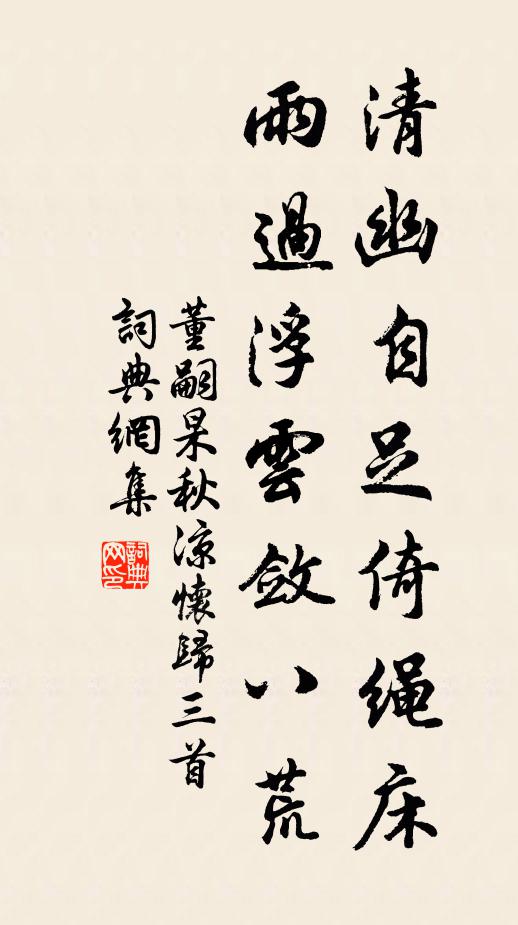 清幽自足倚绳床
雨過浮雲斂八荒
董嗣杲秋涼懷歸三首
詞典網集
詞典网印